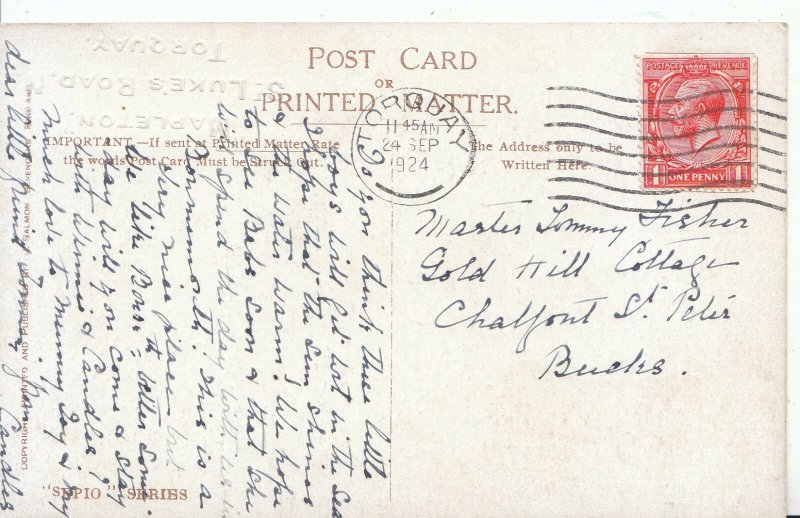 POST CARD
OR
PRINTED MATTER.
IMPORTANT.—If sent at Printed Matter Rate
the words Post Card Must be Struck Out.
The Address only to be
Written Here.
"MAPLETON,"
ST LUKES ROAD,
TORQUAY.
TORQUAY
11 45 AM
24 SEP
1924
POSTAGE REVENUE
1 ONE PENNY 1
Master Tommy Fisher
Gold Hill Cottage
Chalfont St. Peter
Bucks.
Do you think these little
boys will get wet in the Sea
I hope that the Sun shines
& the water warm. We hope
to see Babs soon & that she
will spend the day with us in
Bournemouth. This is a
very nice place but
we like Bourn th better. Some
day will you come & stay
with Winnie & Candles?
Much love to Mummy Day & my
dear little friend Tommy from Candles
COPYRIGHT PRINTED AND PUBLISHED BY J. SALMON SEVENOAKS
"SEPIO" SERIES